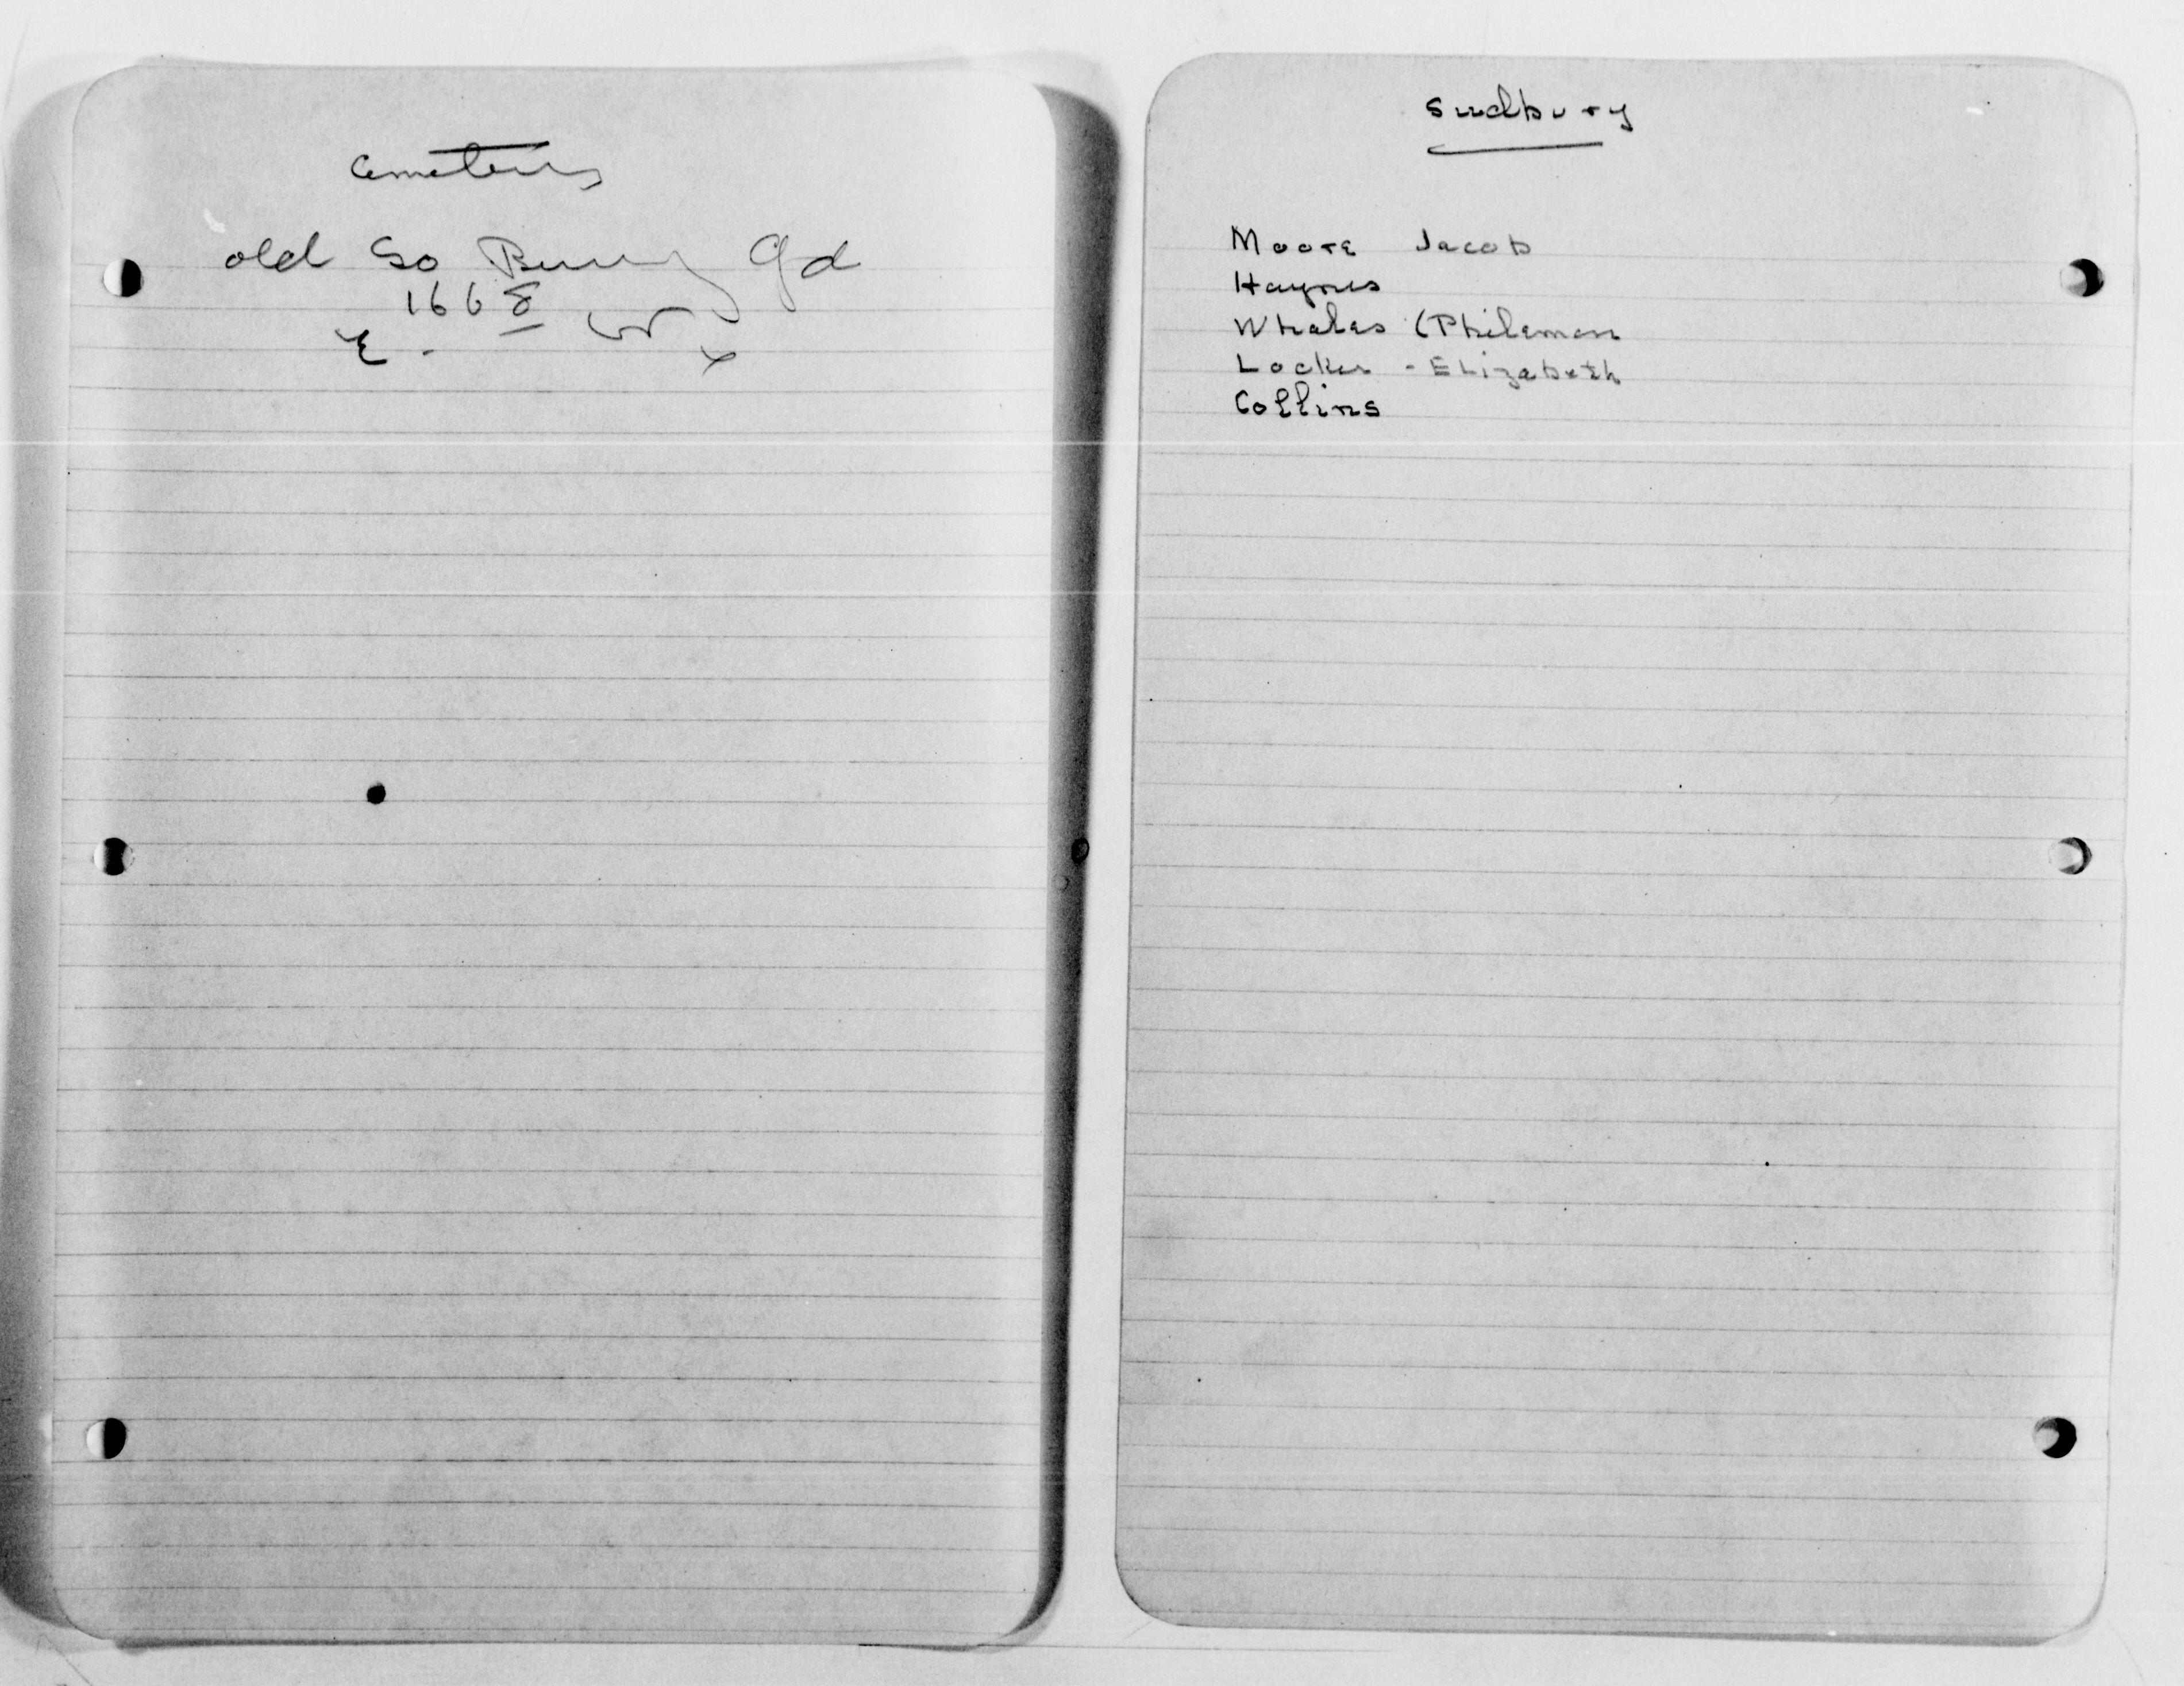 Cemeteries
old So Burying Gd
1668
E - W
Sudbury
Moore Jacob
Haynes
Whales (Philemon
Locker - Elizabeth
Collins